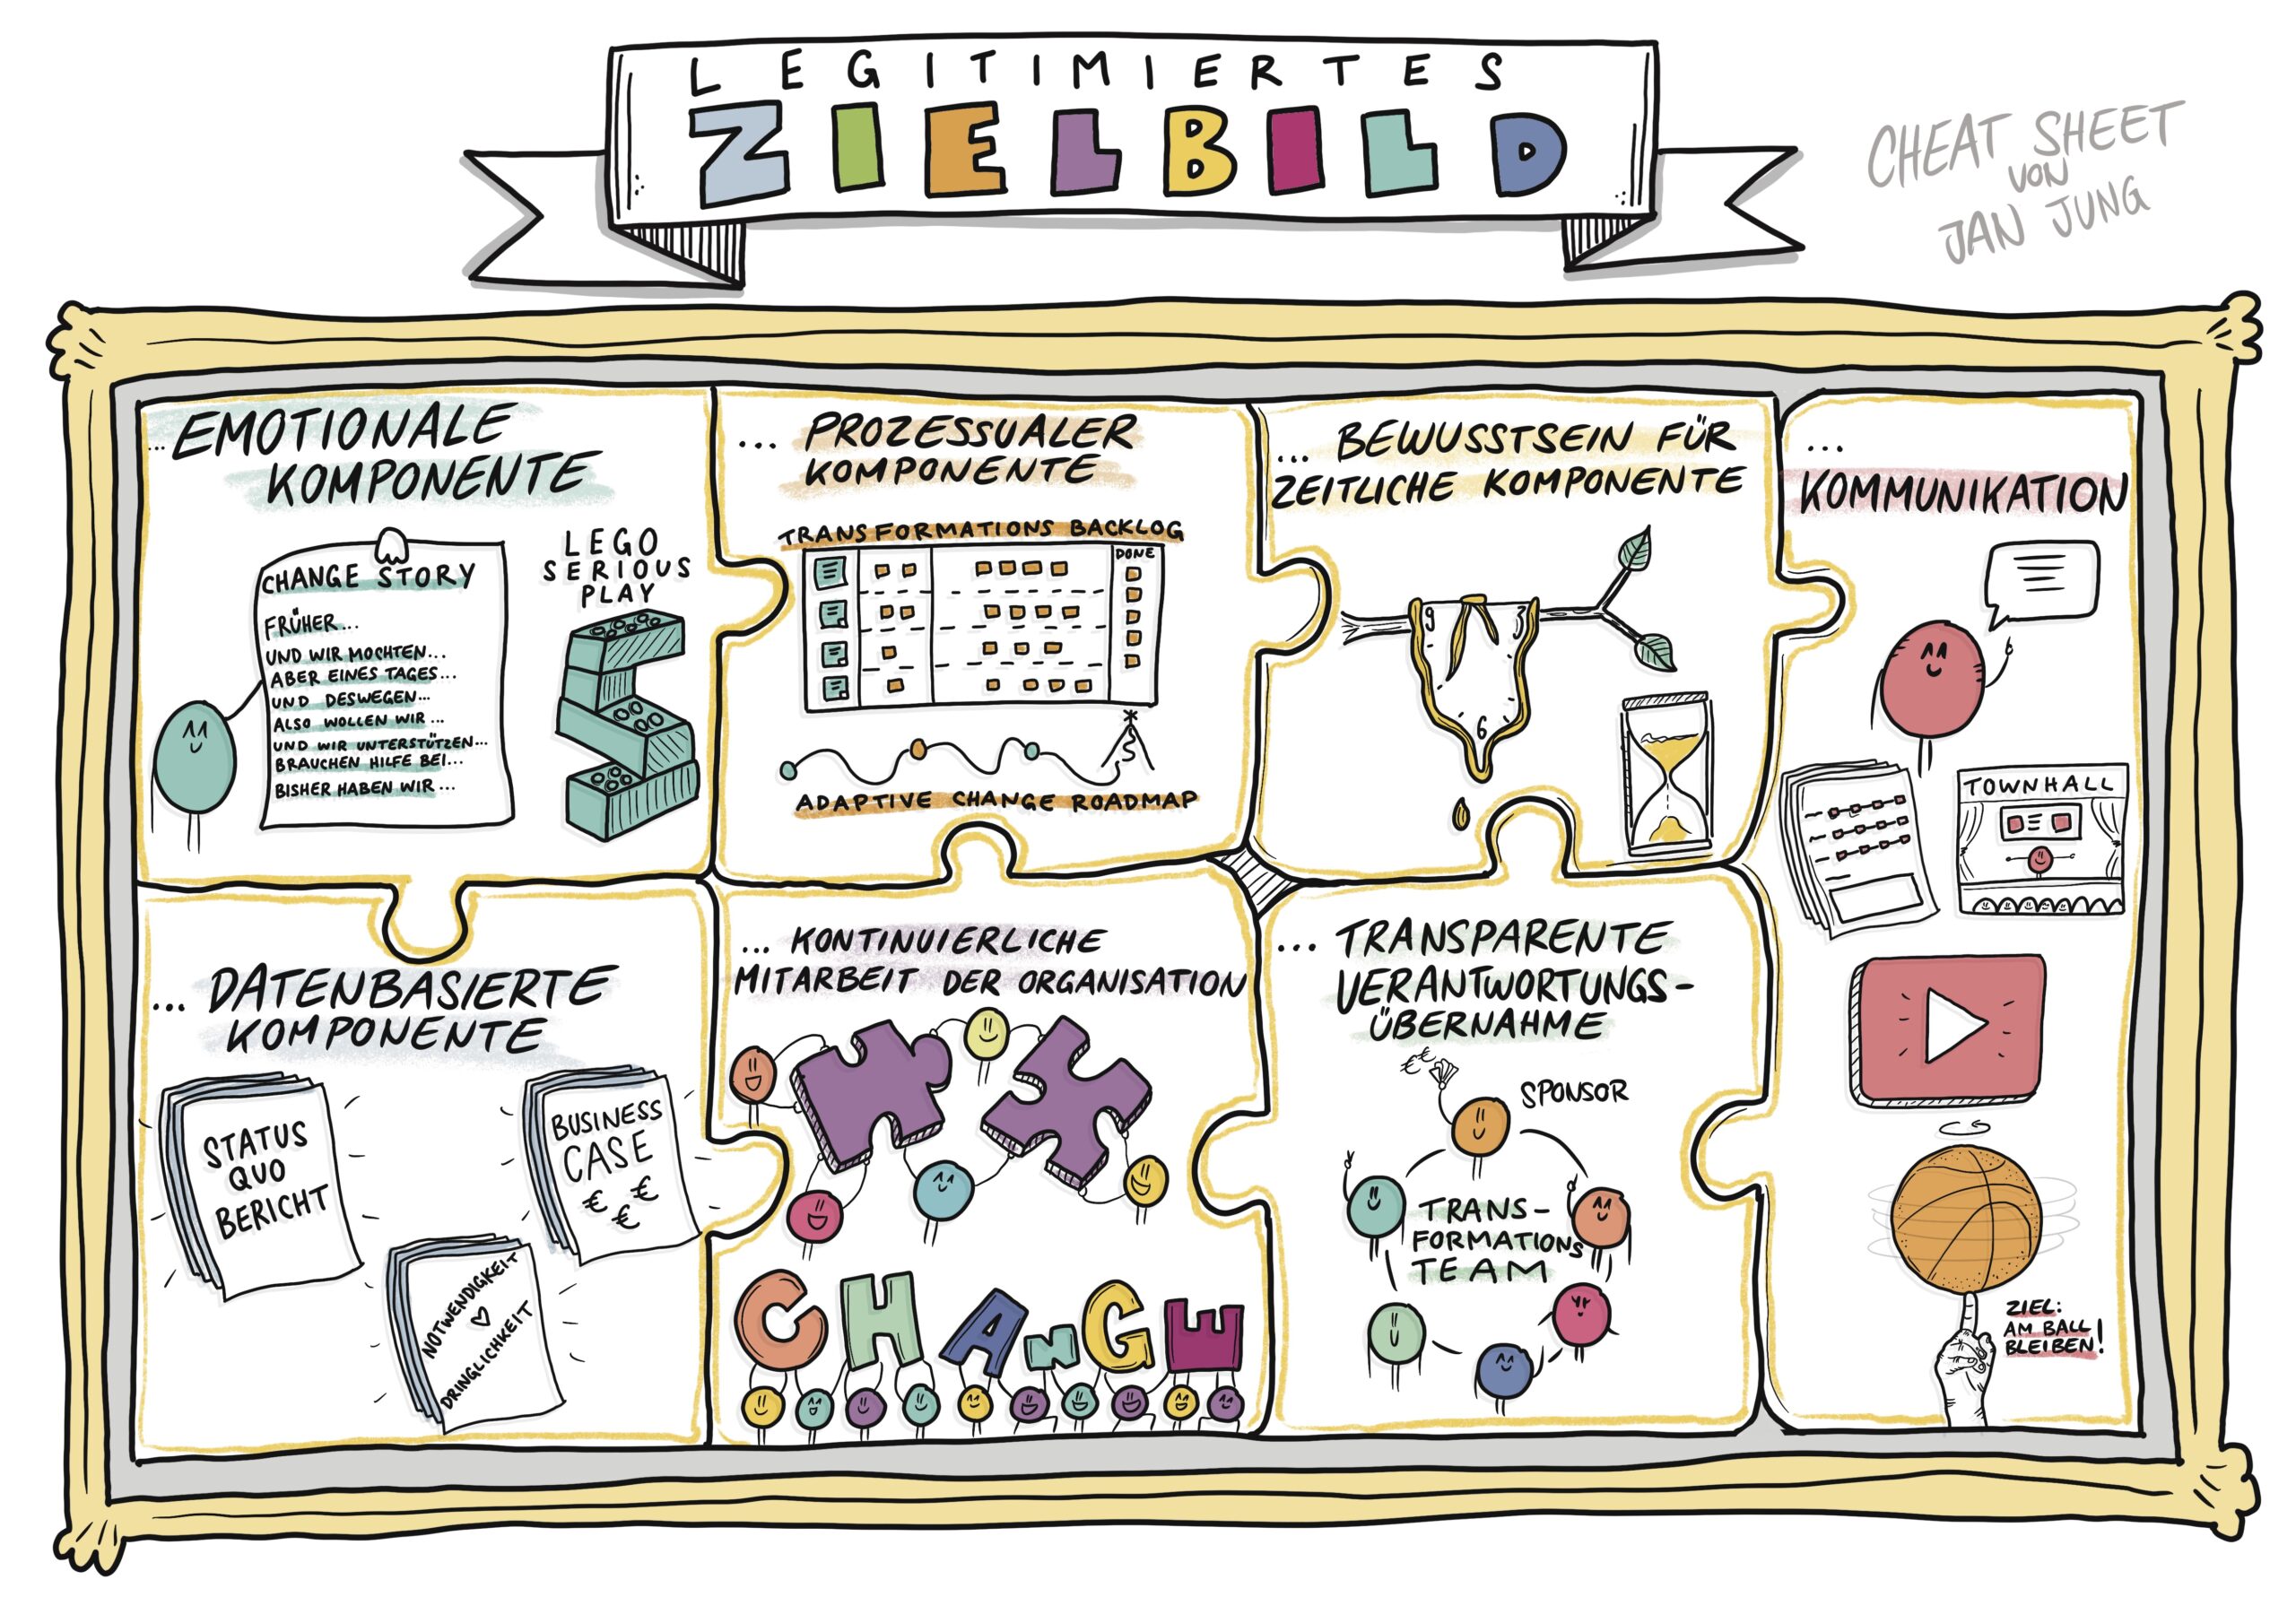 LEGITIMIERTES
ZIELBILD
CHEAT SHEET
VON
JAN JUNG
... EMOTIONALE
KOMPONENTE
CHANGE STORY
FRÜHER...
UND WIR MOCHTEN...
ABER EINES TAGES...
UND DESWEGEN...
ALSO WOLLEN WIR...
UND WIR UNTERSTÜTZEN...
BRAUCHEN HILFE BEI...
BISHER HABEN WIR...
LEGO
SERIOUS
PLAY
... PROZESSUALER
KOMPONENTE
TRANSFORMATIONS BACKLOG
DONE
ADAPTIVE CHANGE ROADMAP
... BEWUSSTSEIN FÜR
ZEITLICHE KOMPONENTE
9 3
6
...
KOMMUNIKATION
TOWNHALL
ZIEL:
AM BALL
BLEIBEN!
... DATENBASIERTE
KOMPONENTE
STATUS
QUO
BERICHT
BUSINESS
CASE
€ €
€
NOTWENDIGKEIT
DRINGLICHKEIT
... KONTINUIERLICHE
MITARBEIT DER ORGANISATION
CHANGE
... TRANSPARENTE
VERANTWORTUNGS-
ÜBERNAHME
€€
SPONSOR
TRANS-
FORMATIONS
TEAM